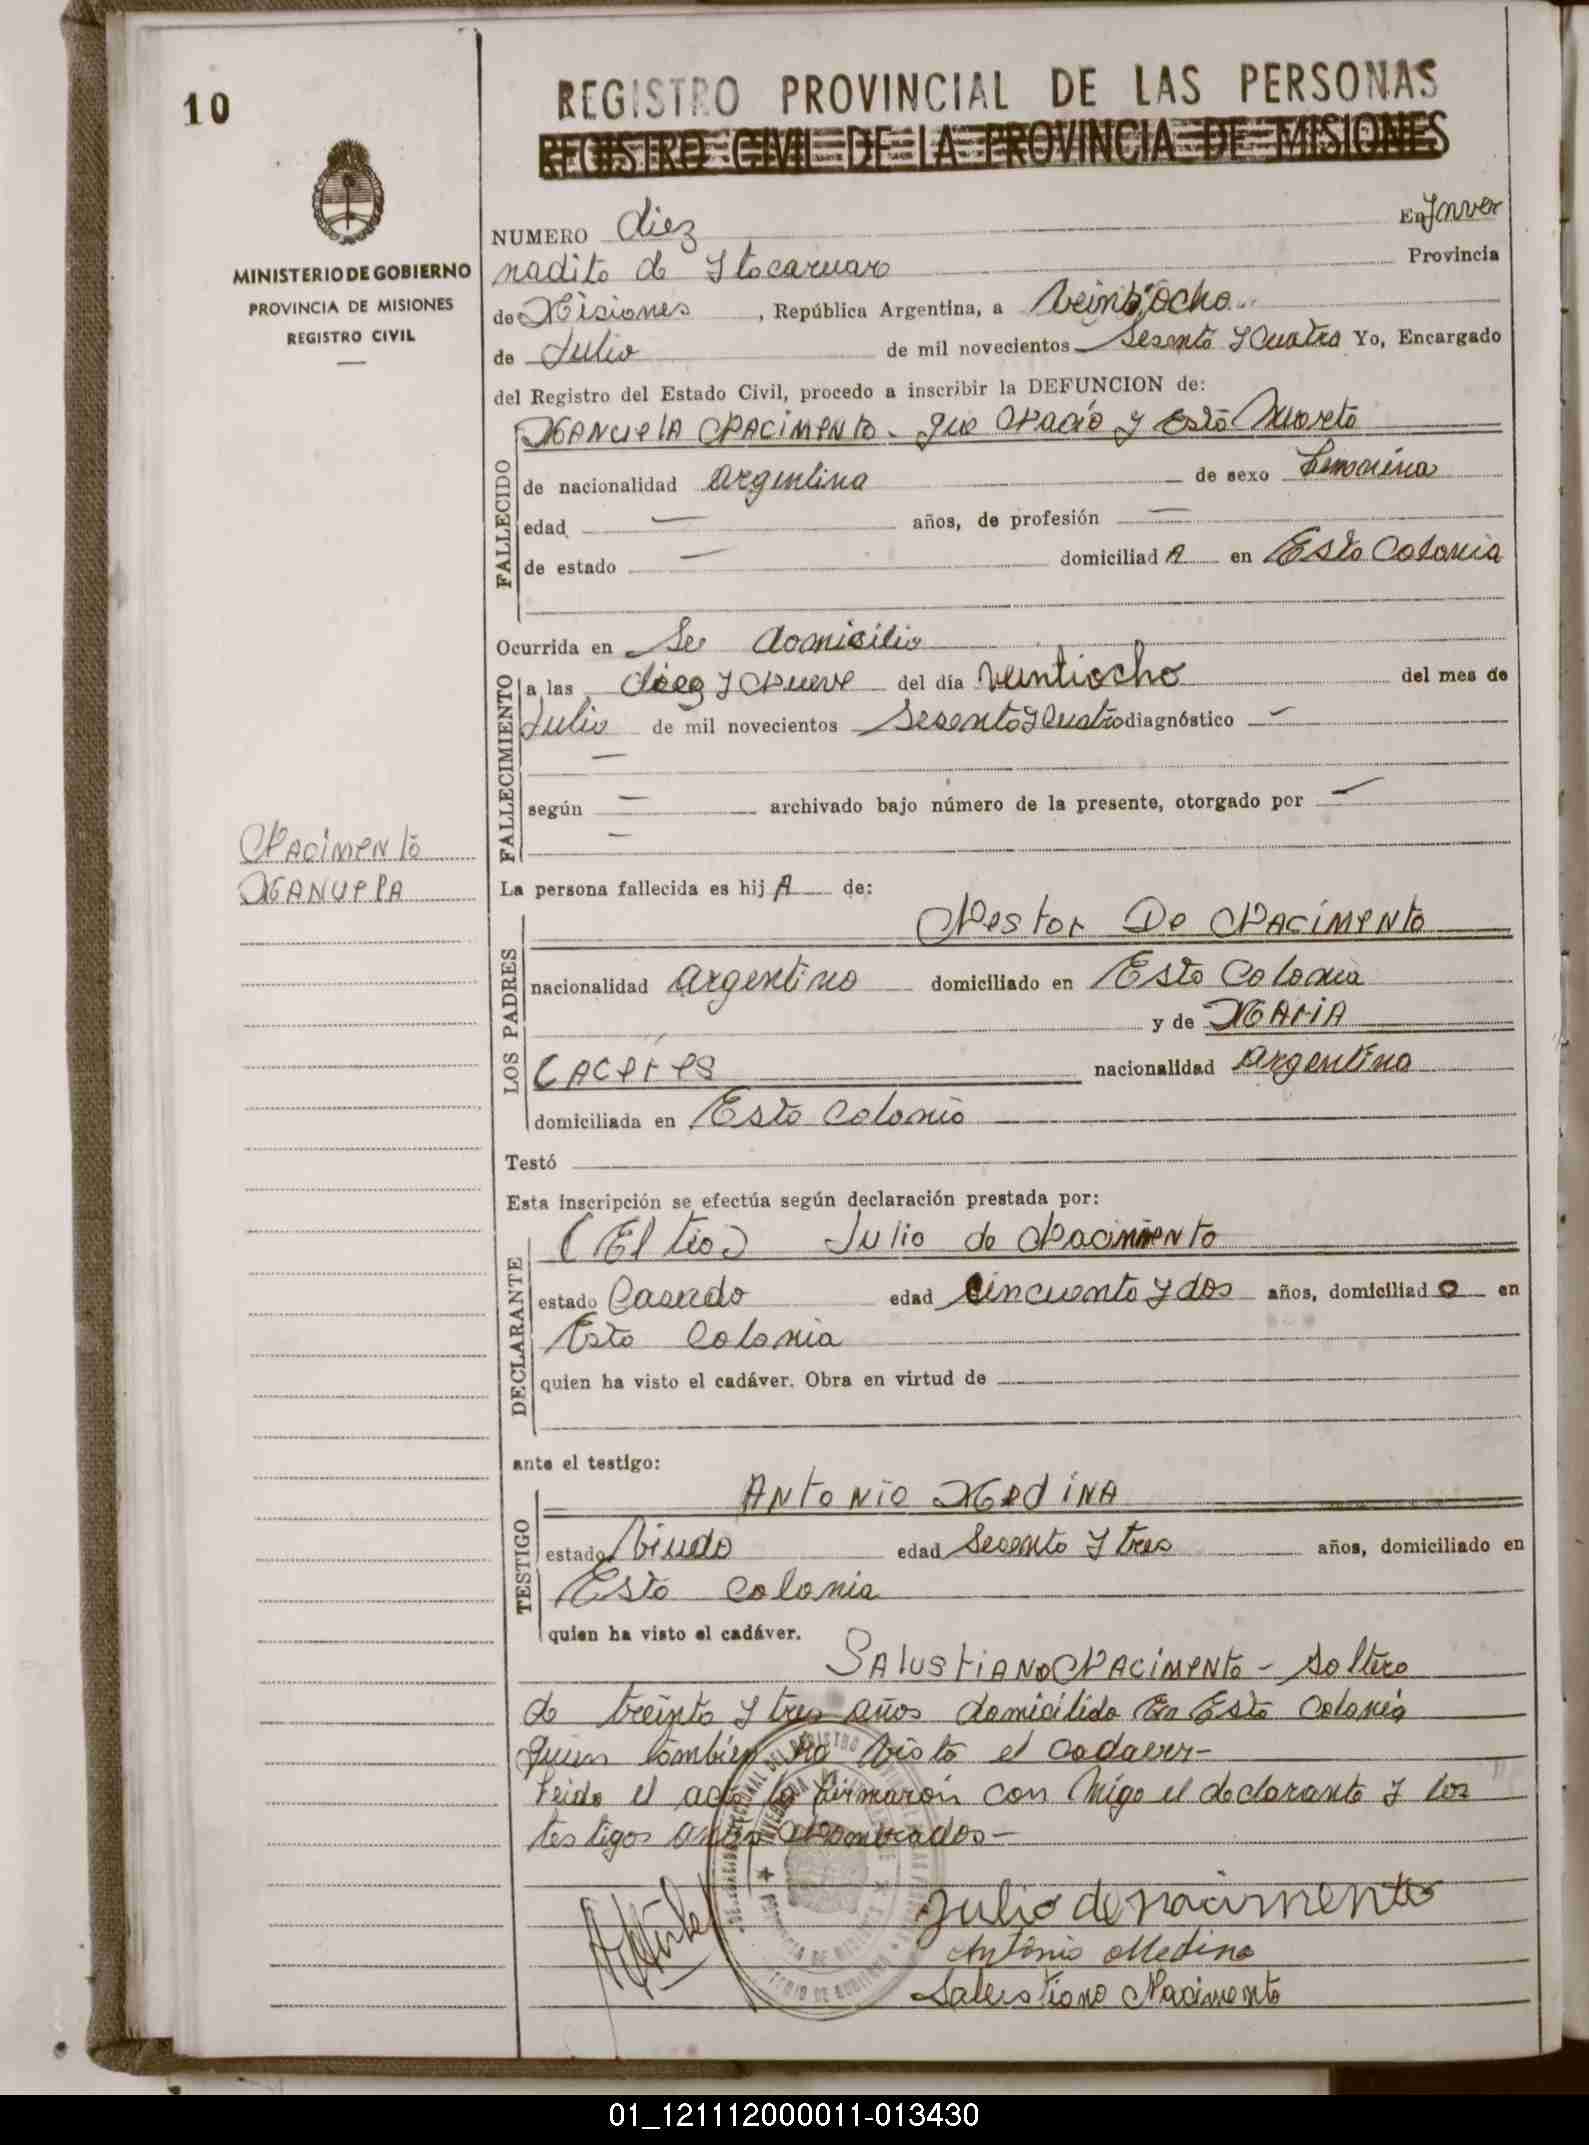 10
REGISTRO PROVINCIAL DE LAS PERSONAS
REGISTRO CIVIL DE LA PROVINCIA DE MISIONES
MINISTERIO DE GOBIERNO
PROVINCIA DE MISIONES
REGISTRO CIVIL
NUMERO diez En Ynver
nadito de Ytacaruare Provincia
de Misiones, República Argentina, a veintiocho
de Julio de mil novecientos Sesenta y Cuatro Yo, Encargado
del Registro del Estado Civil, procedo a inscribir la DEFUNCION de:
FALLECIDO
MANUELA NACIMENTO - que Nació y Está Muerta
de nacionalidad argentina de sexo femenina
edad — años, de profesión —
de estado — domiciliad A en Esta Colonia
Ocurrida en Su domicilio
FALLECIMIENTO
a las diez y Nueve del día veintiocho del mes de
Julio de mil novecientos Sesenta y Cuatro diagnóstico —
—
según — archivado bajo número de la presente, otorgado por —
—
NACIMENTO
MANUELA
La persona fallecida es hij A de:
LOS PADRES
Nestor De NACIMENTO
nacionalidad argentino domiciliado en Esta Colonia
y de MARIA
CACERES nacionalidad argentina
domiciliada en Esta Colonia
Testó
Esta inscripción se efectúa según declaración prestada por:
DECLARANTE
(El tio) Julio de Nacimento
estado Casado edad Cincuenta y dos años, domiciliad o en
Esta Colonia
quien ha visto el cadáver. Obra en virtud de
ante el testigo:
TESTIGO
ANTONIO MEDINA
estado Viudo edad Secenta y tres años, domiciliado en
Esta Colonia
quien ha visto el cadáver.
SALUSTIANO NACIMENTO - Soltero
de treinta y tres años domicilido En Esta Colonia
quien tambien ha visto el cadaver-
Leida el acta la firmarón con migo el declarante y los
testigos antes Nombrados-
Julio de nacimento
Antonio Medina
Salustiano Nacimento
01_121112000011-013430